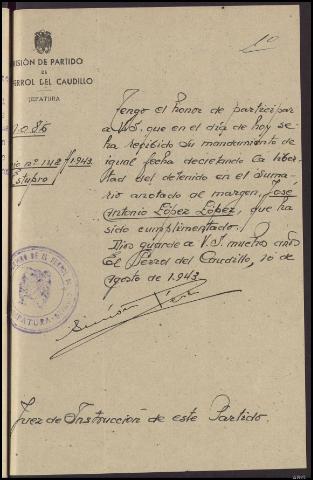 1º
ISIÓN DE PARTIDO
DE
ERROL DEL CAUDILLO
JEFATURA
nº 142/1943
stupro
Tengo el honor de participar
a V.S. que en el día de hoy se
ha recibido su mandamiento de
igual fecha decretando la liber-
tad del detenido en el suma-
rio anotado al margen, José
Antonio López López, que ha
sido cumplimentado.
Dios guarde a V.S. muchos años
El Ferrol del Caudillo, 10 de
Agosto de 1.943
JEFATURA
Juez de Instrucción de este Partido.